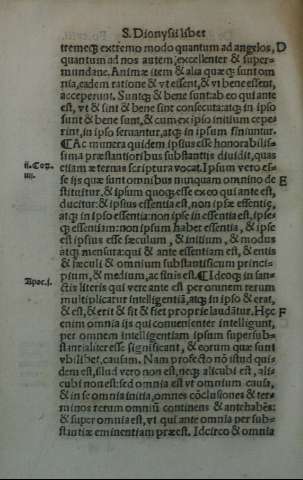 S. Dionysii liber
tremeq; extremo modo quantum ad angelos, D
quantum ad nos autem, excellenter & super-
mundane. Animæ item & alia quæq; sunt om
nia, eadem ratione & vt essent, & vt bene essent,
acceperunt. Suntq; & bene sunt ab eo qui ante
est, vt & sint & bene sint consecuta: atq; in ipso
sunt & bene sunt, & cum ex ipso initium cepe-
rint, in ipso seruantur, atq; in ipsum finiuntur.
¶Ac munera quidem ipsius esse honorabilis-
ii. Cor. sima præstantioribus substantijs diuidit, quas
iiij. etiam æternas scriptura vocat. Ipsum vero es-
se ijs quæ sunt omnibus nunquam omnino de E
stituitur, & ipsum quoq; esse ex eo qui ante est,
ducitur: & ipsius essentia est, non ipsæ essentiæ,
atq; in ipso essentia: non ipse in essentia est, ipse-
q; essentiam: non ipsum habet essentia, & ipse
est ipsius esse sæculum, & initium, & modus
atq; mensura: qui & ante essentiam est, & entis
& sæculi & omnium substantificum princi-
pium, & medium, ac finis est. ¶Ideoq; in san-
Apoc. i. ctis literis qui vere ante est per omnem rerum
multiplicatur intelligentiã, atq; in ipso & erat,
& est, & erit & sit & fiet proprie laudãtur. Hęc F
enim omnia ijs qui conuenienter intelligunt,
per omnem intelligentiam ipsum supersub-
stantialiter esse significant, & eorum quæ sunt
vbilibet, causam. Nam profecto nõ istud qui-
dem est, illud vero non est, neq; alicubi est, ali-
cubi non est: sed omnia est vt omnium causa,
& in se omnia initia, omnes cõclusiones & ter-
minos rerum omniũ continens & antehabẽs:
& super omnia est, vt qui ante omnia per sub-
stantiæ eminentiam præest. Idcirco & omnia